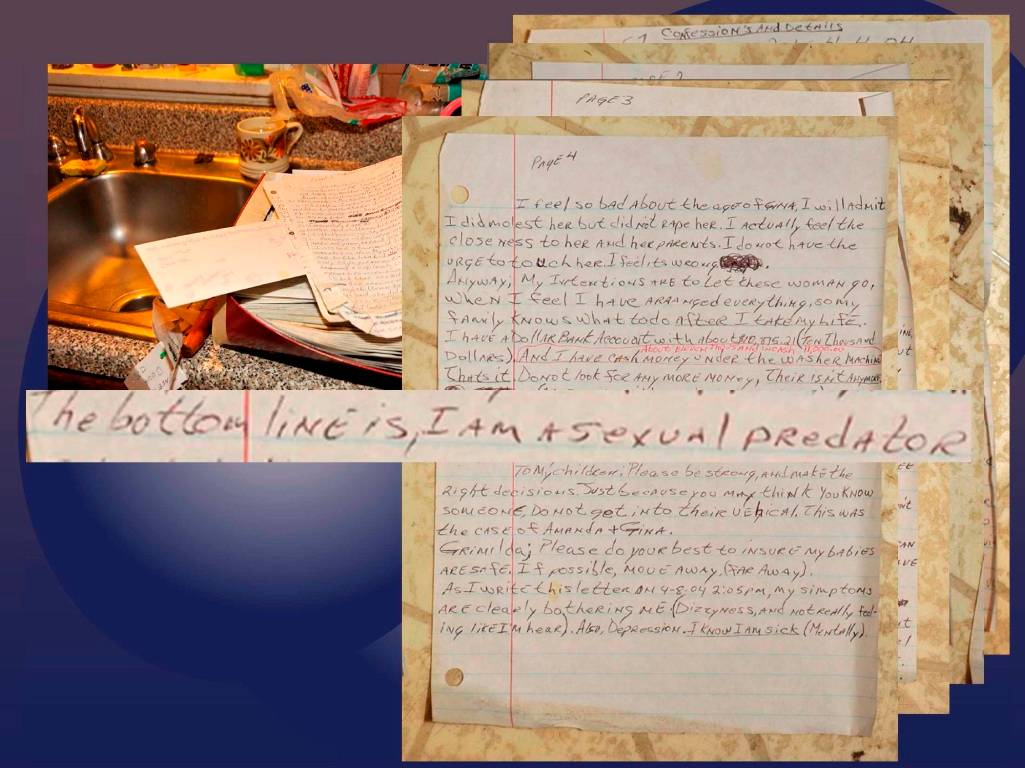 CONFESSIONS AND DETAILS
PAGE 3
PAGE 4
I feel so bad About the age of GINA, I will Admit
I did molest her but did not rape her. I actually feel the
close ness to her AND her parents. I do not have the
URGE to touch her. I feel its wrong
Anyway, My Intentions ARE to Let these woman go,
when I feel I have ARRANGED everything, so my
family KNOWS What to do After I take my Life.
I have A DollAR BANK Account with about (TEN Thousand
DollARs). And I have cash MONEY UNDER the WASHER MACHINE
Thats it Do not look for ANY MORE MONEY, Their IS Nt ANYMORE
The bottom line is, I AM A Sexual predator
To My children: Please be strong, and make the
Right decisions. Just because you may think You KNOW
SOMEONE, DO NOT get into their VEhicAl. THIS WAS
the CASE of AMANDA + GINA.
GRIMILDA; Please do your best to insure my babies
ARE SAFE. If possible, MOVE AWAY, (FAR AWAY).
As I write this letter ON 4-8-04 2:05pm, my symptoms
ARE cleaRly bothering ME (DizzyNess, AND Not Really feel-
ing like I'm hear). Also, Depression. I KNOW I AM sick (MENtAlly)